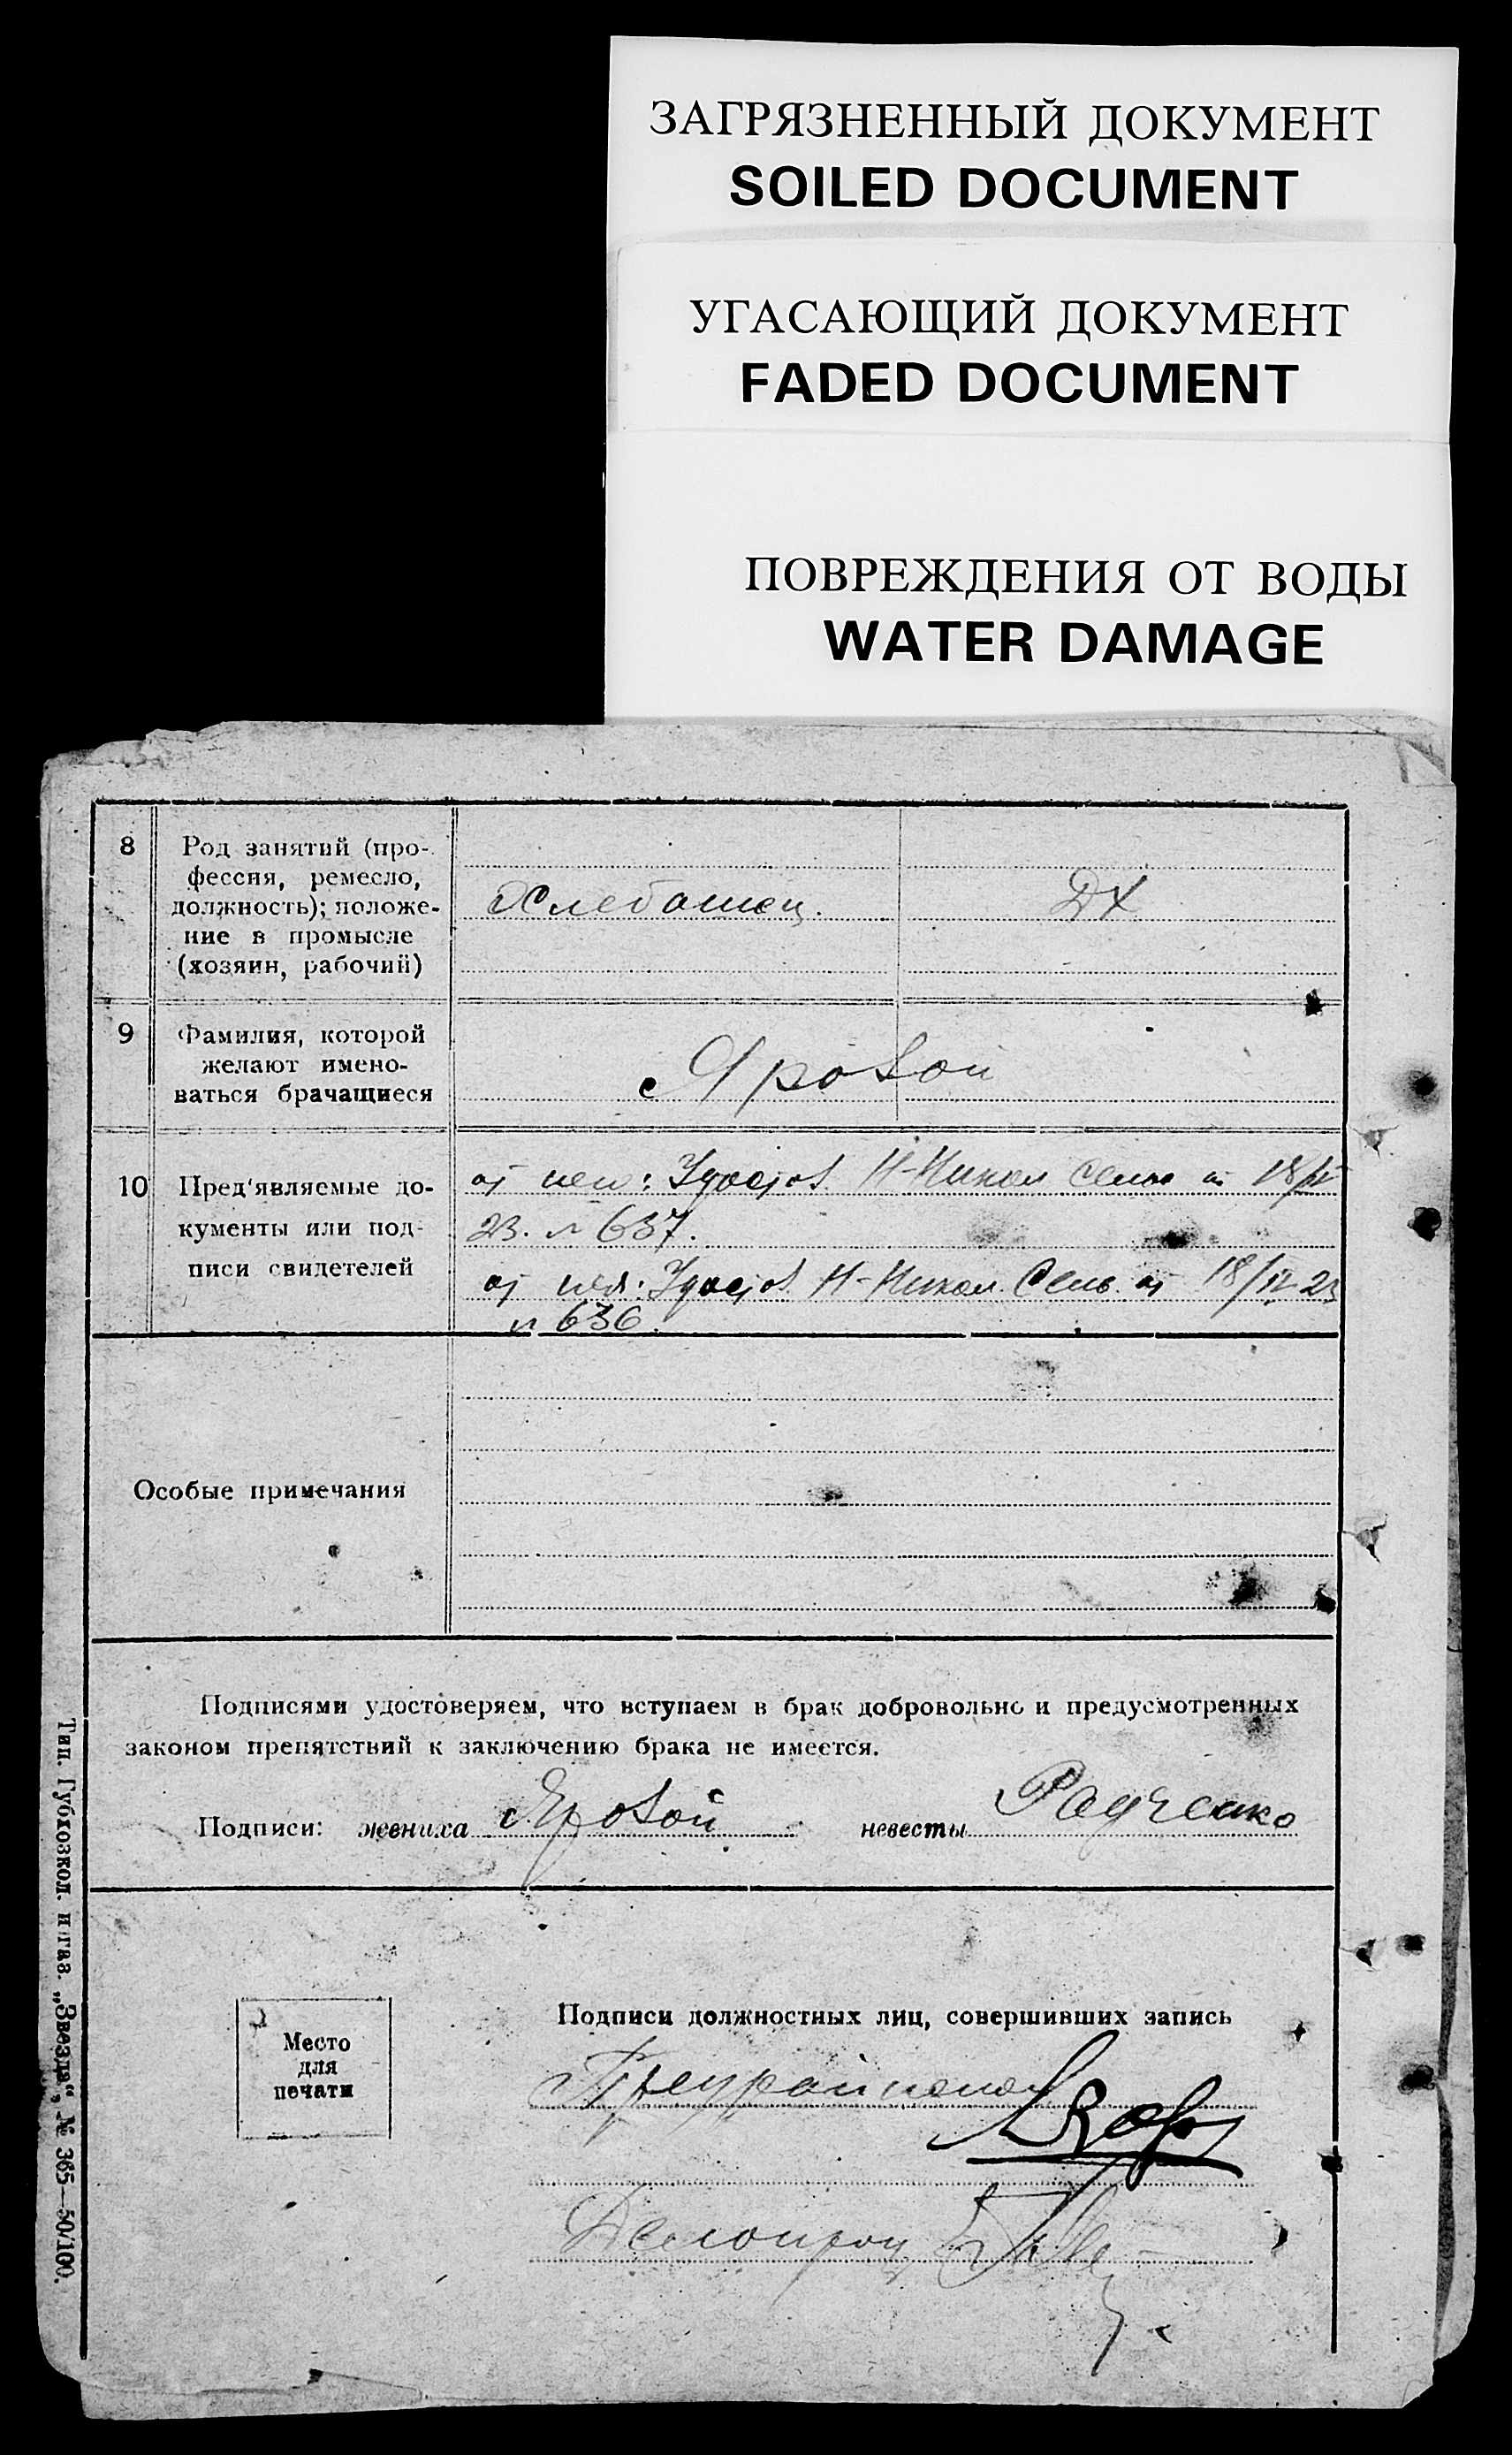 ЗАГРЯЗНЕННЫЙ ДОКУМЕНТ
SOILED DOCUMENT
УГАСАЮЩИЙ ДОКУМЕНТ
FADED DOCUMENT
ПОВРЕЖДЕНИЯ ОТ ВОДЫ
WATER DAMAGE
8 Род занятий (про-
фессия, ремесло,
должность); положе-
ние в промысле
(хозяин, рабочий)
Хлебопашец. ДХ
9 Фамилия, которой
желают имено-
ваться брачащиеся
Яровой
10 Пред'являемые до-
кументы или под-
писи свидетелей
от Удост Н-Никол Сель 18/IV
23. № 637.
от Удост. Н-Никол. Сель. от 18/IV 23
№ 636.
Особые примечания
Подписями удостоверяем, что вступаем в брак добровольно и предусмотренных
законом препятствий к заключению брака не имеется.
Подписи: жениха Яровой невесты Радченко
Место
для
печати
Подписи должностных лиц, совершивших запись
Делопроц
Тип. Губхозкол. и газ. „Звезда“, № 365—50/100.